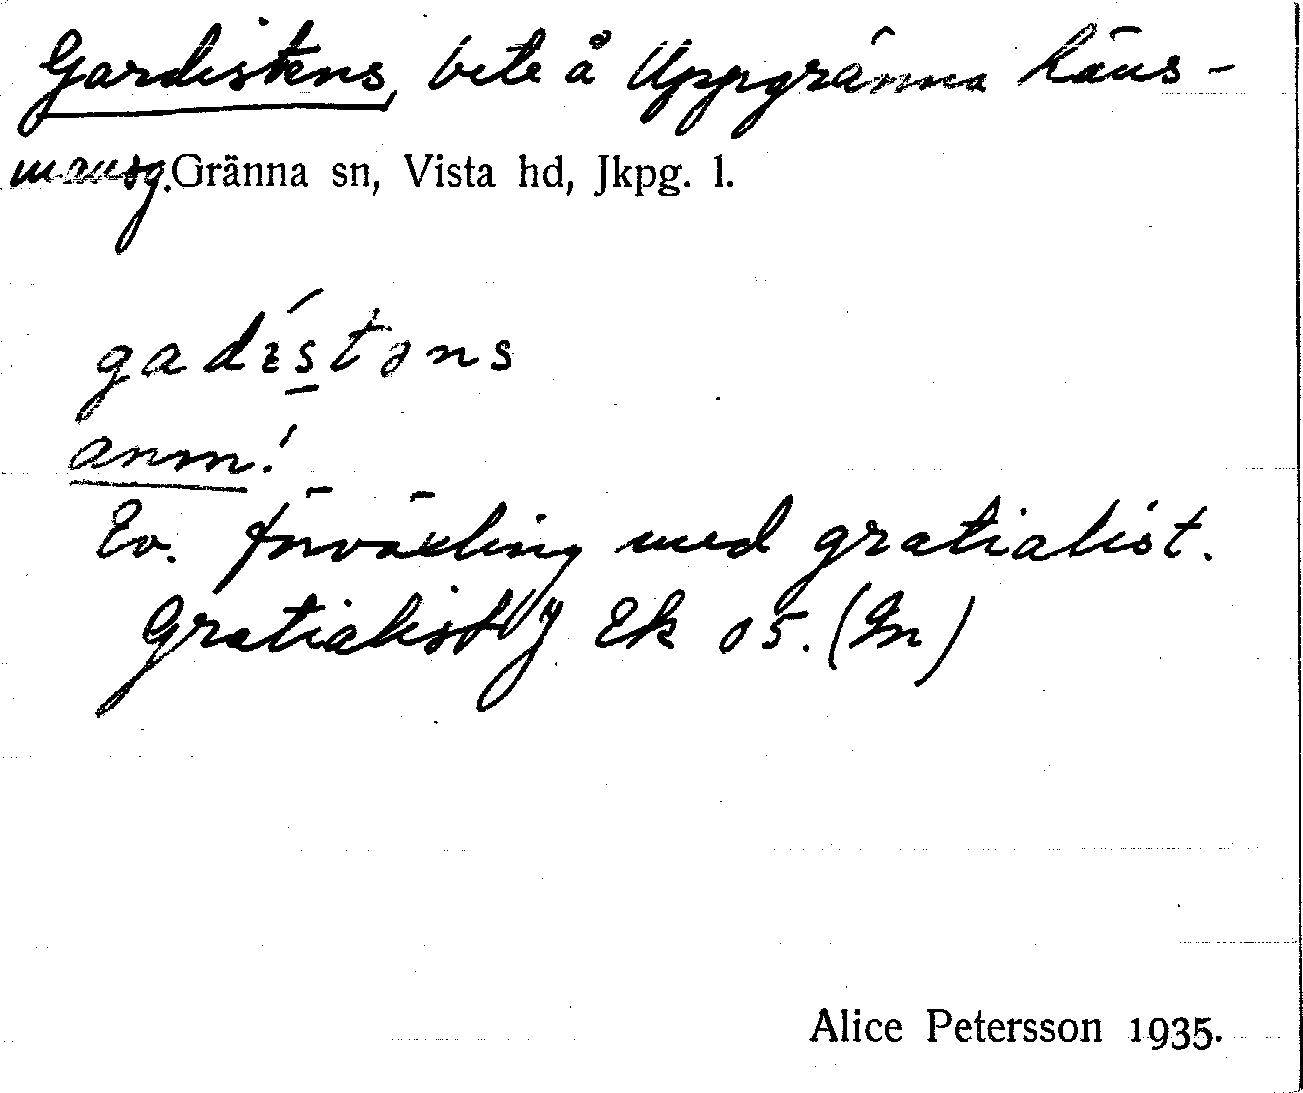 Gardistens, bete å Uppgränna läns-
mansg. Gränna sn, Vista hd, Jkpg. l.
gadístəns
anm!
Ev. förväxling med gratialist.
Gratialisthj Ek 05. (Gn)
Alice Petersson 1935.